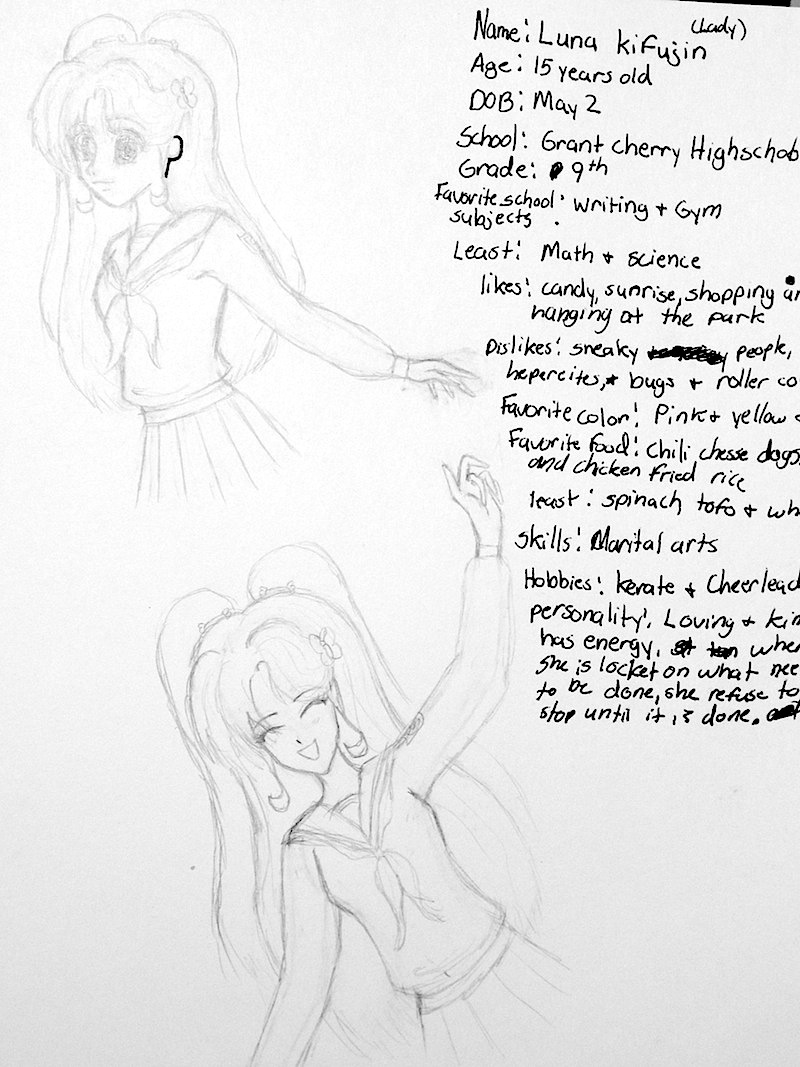 (Lady)
Name: Luna kifujin
Age: 15 years old
DOB: May 2
School: Grant cherry Highschool
Grade: 9th
Favorite school: writing + Gym
subjects .
Least: Math + science
likes: candy, sunrise, shopping
hanging at the park
Dislikes: sneaky people,
hepercites, + bugs + roller
Favorite color: Pink + yellow
Favorite food: Chili chesse dogs
and chicken fried rice
least: spinach tofo +
skills: Marital arts
Hobbies: kerate + Cheerlead
personality: Loving +
has energy,
she is locket on what
to be done, she refuse to
stop until it is done.